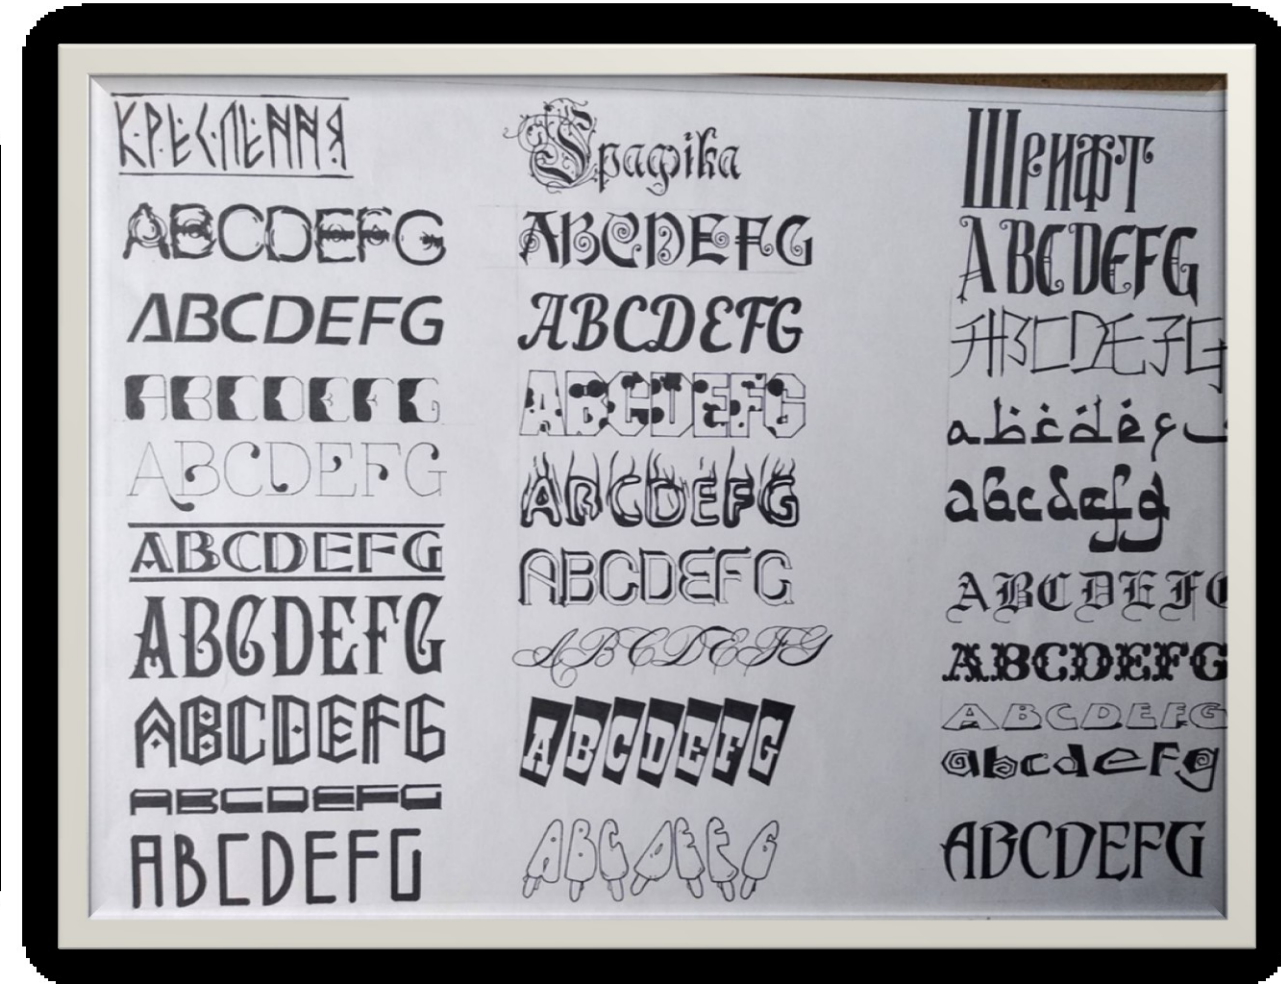 КРЕСЛЕННЯ
ABCDEFG
ABCDEFG
ABCDEFG
ABCDEFG
ABCDEFG
ABCDEFG
ABCDEFG
ABCDEFG
ABCDEFG
Графіка
ABCDEFG
ABCDEFG
ABCDEFG
ABCDEFG
ABCDEFG
ABCDEFG
ABCDEFG
ABCDEFG
Шрифт
ABCDEFG
ABCDEFG
abcdef
abcdefg
ABCDEFG
ABCDEFG
ABCDEFG
abcdefg
ABCDEFG